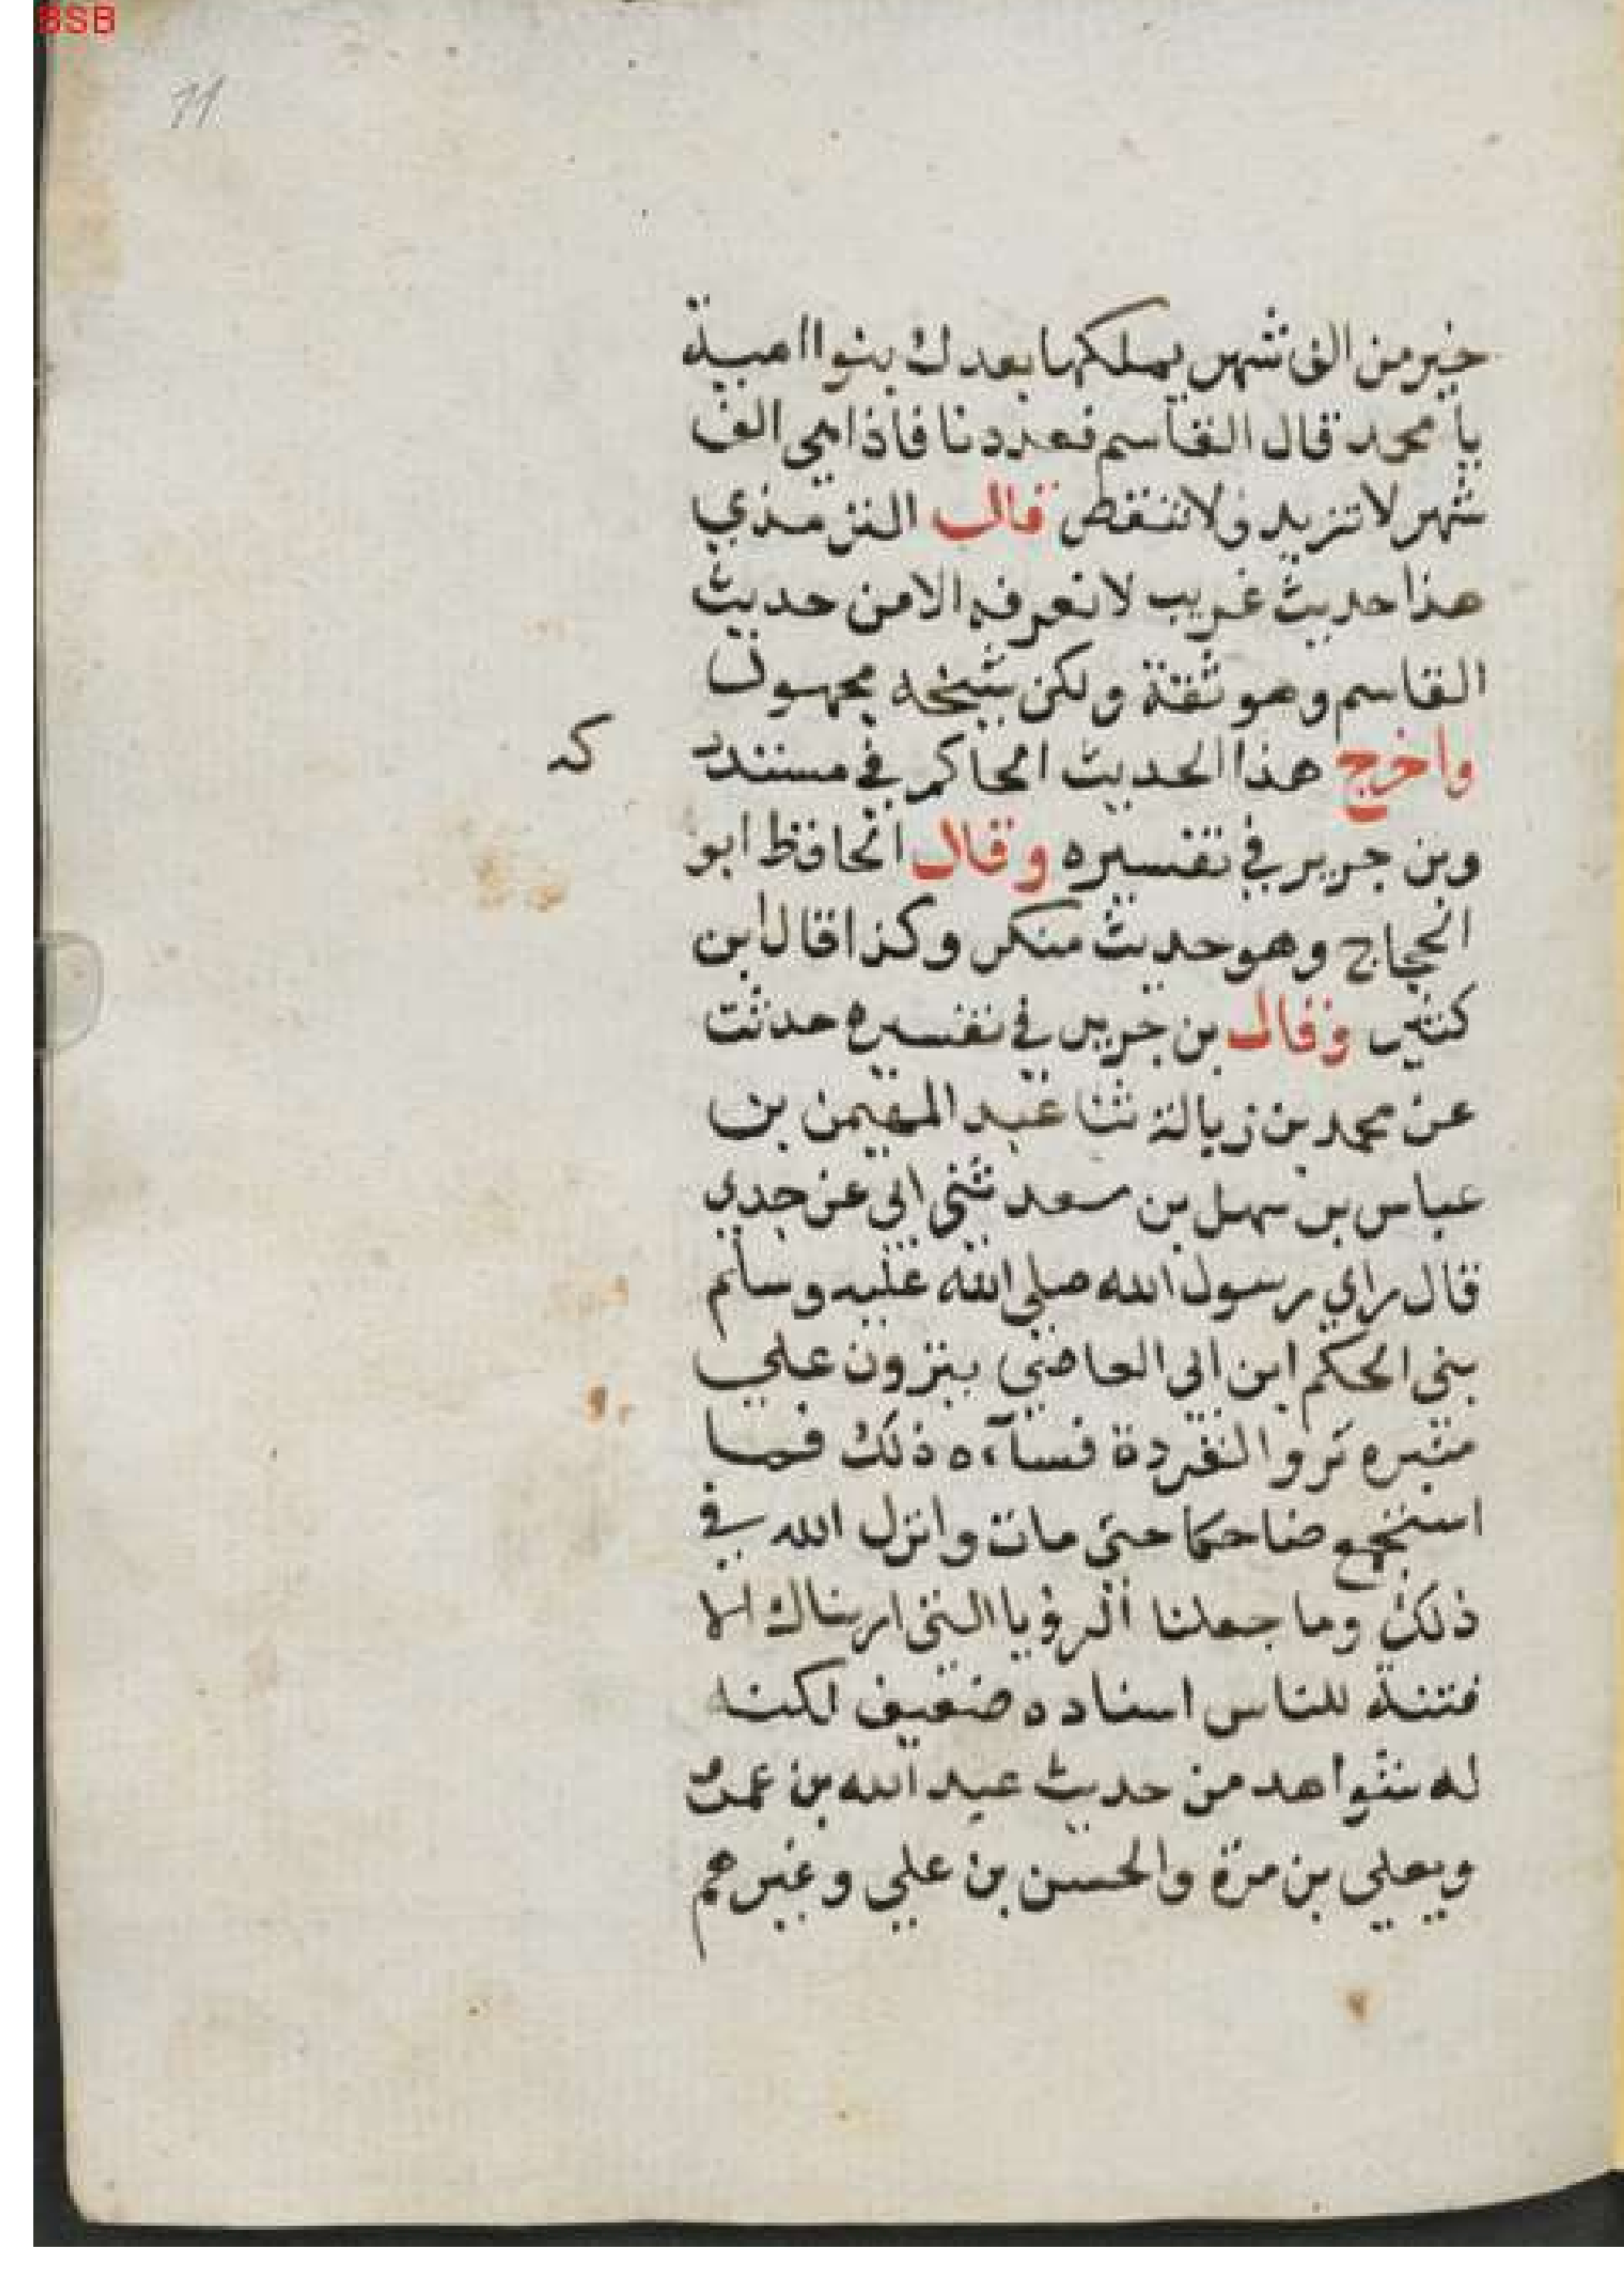 BSB
11
خير من الف شهر يملكها بعدك بنوا امية
يا محمد قال القاسم فعددنا فاذا هي الف
شهر لا تزيد ولا تنقص قال الترمذي
هذا حديث غريب لا نعرفه الا من حديث
القاسم وهو ثقة ولكن شيخه مجهول
واخرج هذا الحديث الحاكم في مستدر
كه
وبن جرير في تفسيره وقال الحافظ ابو
الحجاج وهو حديث منكر وكذا قال ابن
كثير وقال بن جرير في تفسيره حدثت
عن محمد بن زبالة ثنا عبد المهيمن بن
عباس بن سهل بن سعد ثني ابي عن جدي
قال راي رسول الله صلي الله عليه وسلم
بني الحكم ابن ابي العاصي ينزون علي
منبره نزو القردة فساءه ذلك فما
استجمع ضاحكا حتى مات وانزل الله في
ذلك وما جعلنا الرؤيا التي اريناك الا
فتنة للناس اسناده ضعيف لكنه
له شواهد من حديث عبد الله بن عمر
ويعلي بن مرة والحسن بن علي وغيرهم